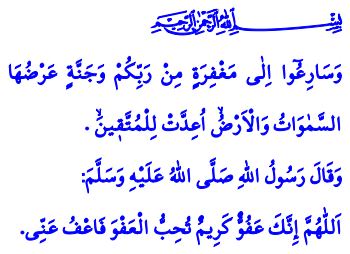 بِسْمِ اللّٰهِ الرَّحْمٰنِ الرَّحِيمِ
وَسَارِعُٓوا اِلٰى مَغْفِرَةٍ مِنْ رَبِّكُمْ وَجَنَّةٍ عَرْضُهَا
السَّمٰوَاتُ وَالْاَرْضُۙ اُعِدَّتْ لِلْمُتَّق۪ينَۙ .
وَقَالَ رَسُولُ اللّٰهِ صَلَّى اللّٰهُ عَلَيْهِ وَسَلَّمَ:
اَللّٰهُمَّ إِنَّكَ عَفُوٌّ كَرِيمٌ تُحِبُّ الْعَفْوَ فَاعْفُ عَنِّى.